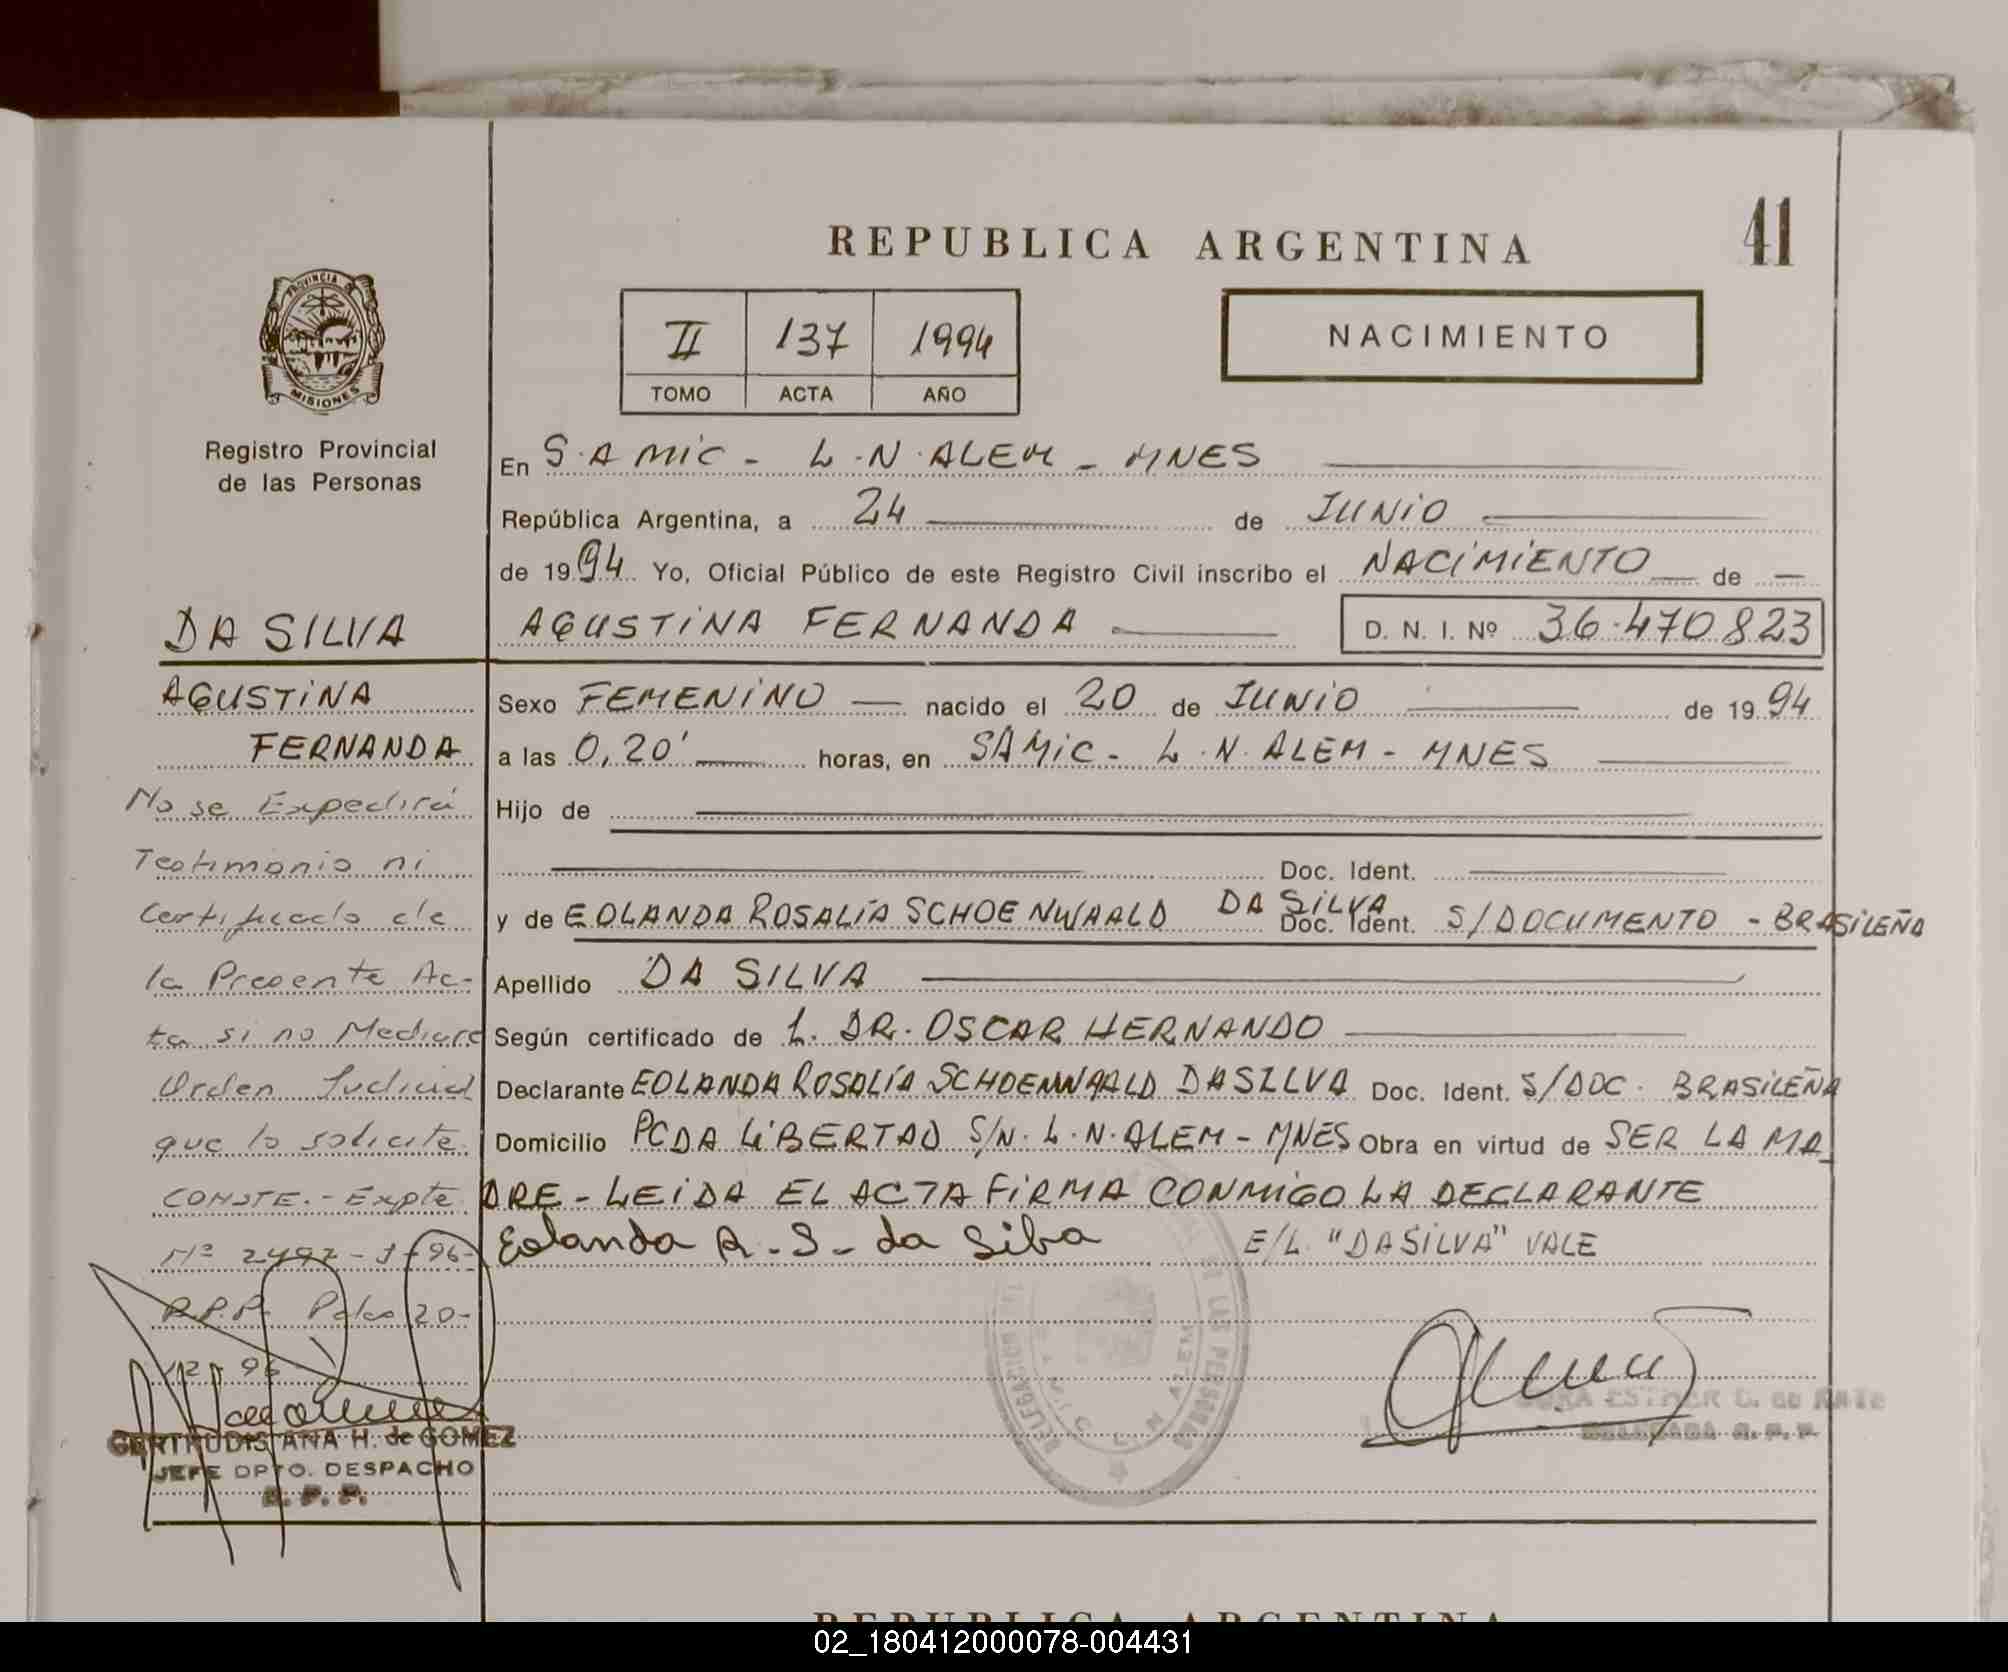 REPUBLICA ARGENTINA
41
PROVINCIA DE
MISIONES
Registro Provincial
de las Personas
II 137 1994
TOMO ACTA AÑO
NACIMIENTO
En S.A MIC - L.N.ALEM - MNES
República Argentina, a 24 de JUNIO
de 1994 Yo, Oficial Público de este Registro Civil inscribo el NACIMIENTO de —
AGUSTINA FERNANDA D. N. I. Nº 36.470823
Sexo FEMENINO — nacido el 20 de JUNIO de 1994
a las 0,20' horas, en SAMIC - L.N.ALEM - MNES
Hijo de
Doc. Ident.
y de EOLANDA ROSALÍA SCHOENWAALD DA SILVA Doc. Ident. S/DOCUMENTO - BRASILEÑA
Apellido DA SILVA
Según certificado de L. DR. OSCAR HERNANDO
Declarante EOLANDA ROSALÍA SCHOENWAALD DASILVA Doc. Ident. S/DOC. BRASILEÑA
Domicilio PCDA LIBERTAD S/N. L.N.ALEM - MNES Obra en virtud de SER LA MA_
DRE - LEIDA EL ACTA FIRMA CONMIGO LA DECLARANTE
Eolanda R. S. da Silva E/L. "DASILVA" VALE
DA SILVA
AGUSTINA
FERNANDA
No se Expedirá
Testimonio ni
Certificado de
la Presente Ac-
ta si no Mediare
Orden Judicial
que lo solicite.
CONSTE.- Expte
Nº 2492-J-96-
R.P.P. Pdas 20-
12-96
GERTRUDIS ANA H. de GOMEZ
JEFE DPTO. DESPACHO
R. P. P.
DELEGACION
DE LAS PERSONAS
L N ALEM
ESTHER C. de
DELEGADA R.P.P.
REPUBLICA ARGENTINA
02_180412000078-004431